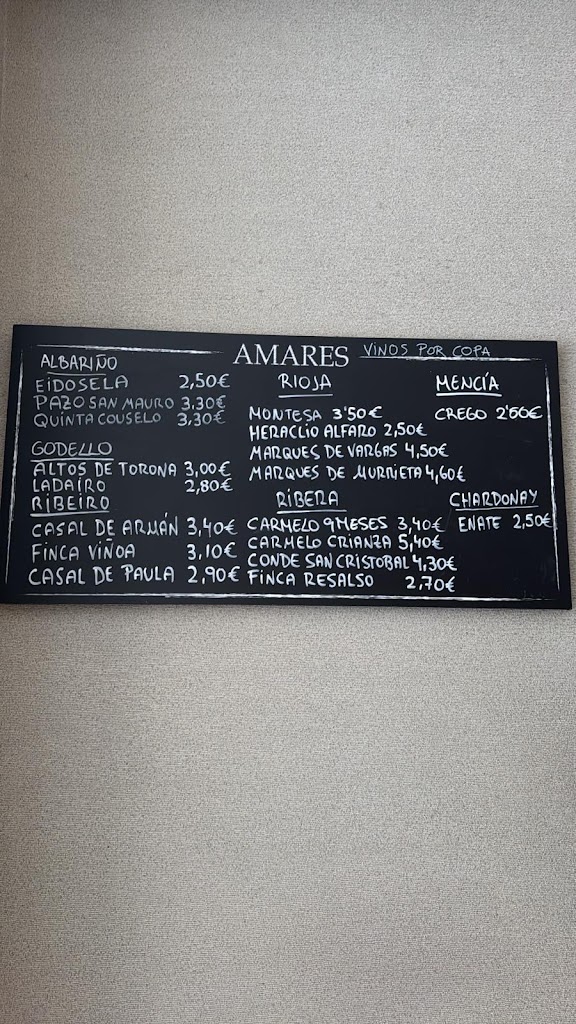 AMARES VINOS POR COPA
ALBARIÑO
EIDOSELA 2,50€
PAZO SAN MAURO 3,30€
QUINTA COUSELO 3,30€
GODELLO
ALTOS DE TORONA 3,00€
LADAÍRO 2,80€
RIBEIRO
CASAL DE ARMÁN 3,40€
FINCA VIÑOA 3,10€
CASAL DE PAULA 2,90€
RIOJA
MONTESA 3'50€
HERACLIO ALFARO 2,50€
MARQUES DE VARGAS 4,50€
MARQUES DE MURRIETA 4,60€
RIBERA
CARMELO 9 MESES 3,40€
CARMELO CRIANZA 5,40€
CONDE SAN CRISTOBAL 4,30€
FINCA RESALSO 2,70€
MENCÍA
CREGO 2'60€
CHARDONAY
ENATE 2,50€